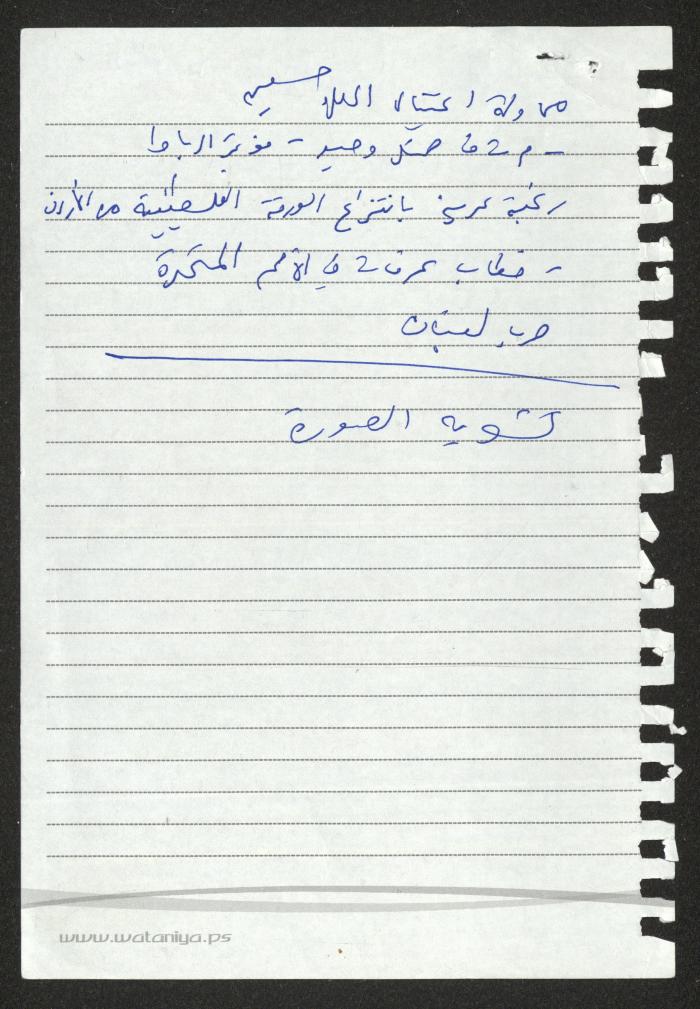 محاولة اغتيال الملك حسين
- م ت ف ممثل وحيد - مؤتمر الرباط
رغبة عربية بانتزاع الورقة الفلسطينية من الأردن
- خطاب عرفات في الأمم المتحدة
حرب لبنان
تشويه الصورة
www.wataniya.ps